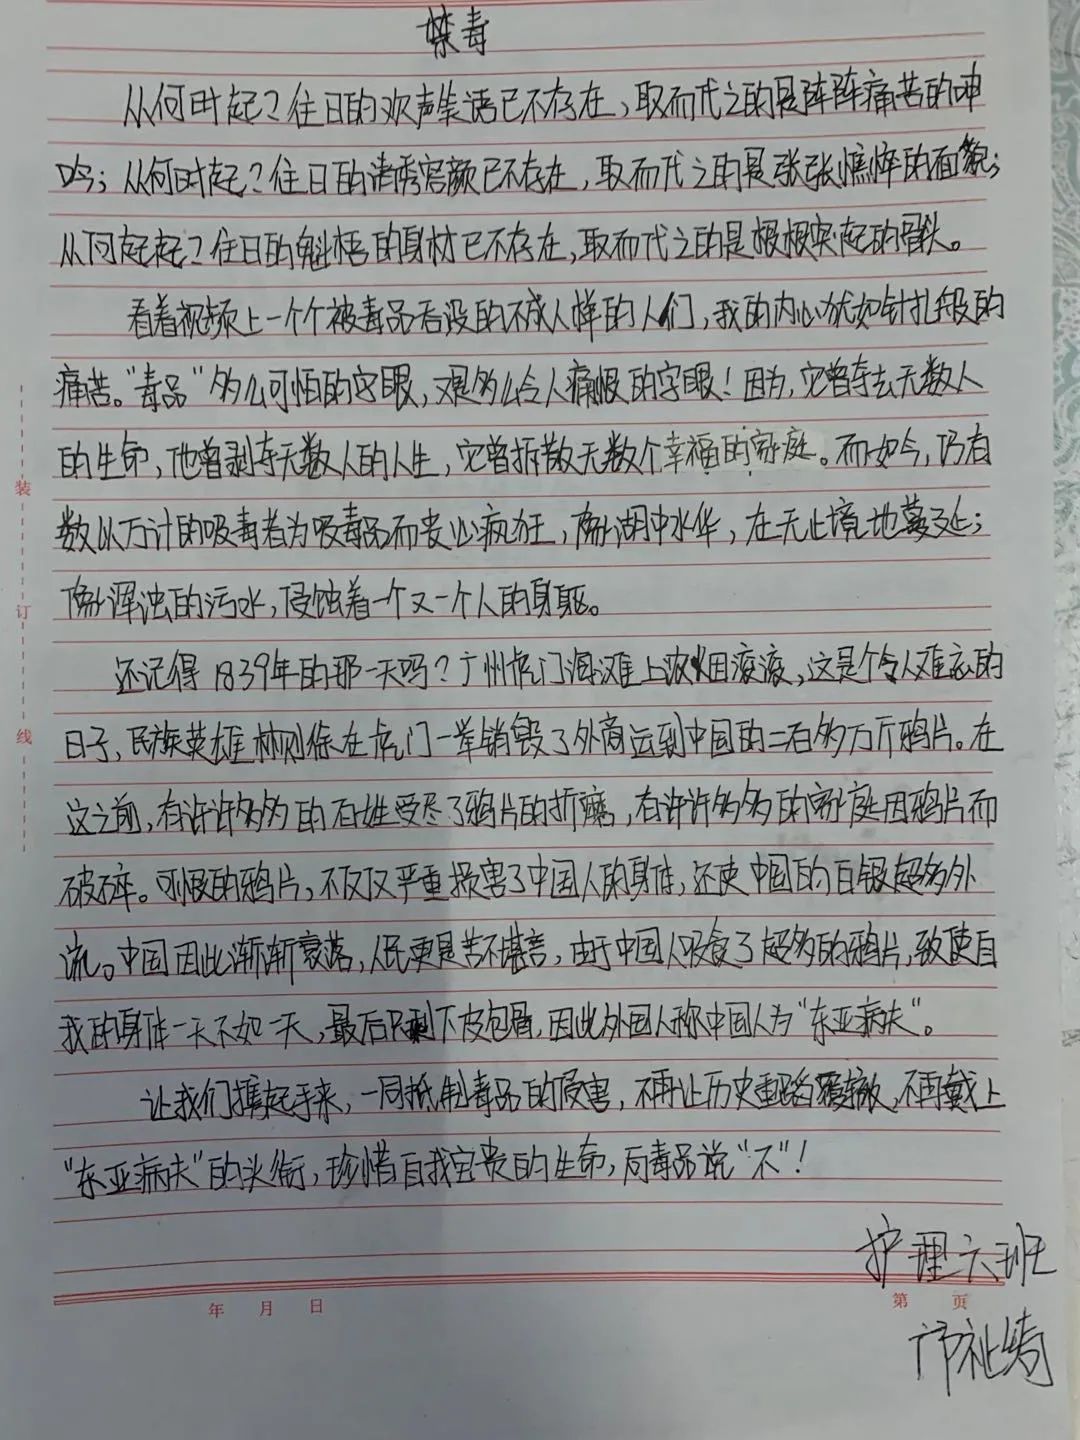 禁毒
从何时起？往日的欢声笑语已不存在，取而代之的是阵阵痛苦的呻
吟；从何时起？往日的清秀容颜已不存在，取而代之的是张张憔悴的面貌；
从何起起？往日的魁梧的身材已不存在，取而代之的是根根突起的骨头。
看着视频上一个个被毒品吞没的不成人样的人们，我的内心犹如针扎般的
痛苦。“毒品”多么可怕的字眼，又是多么令人痛恨的字眼！因为，它曾夺去无数人
的生命，他曾剥夺无数人的人生，它曾拆散无数个幸福的家庭。而如今，仍有
数以万计的吸毒者为吸毒品而丧心疯狂，像湖中水华，在无止境地蔓延；
像浑浊的污水，侵蚀着一个又一个人的身躯。
还记得1839年的那一天吗？广州虎门海滩上浓烟滚滚，这是个令人难忘的
日子，民族英雄林则徐在虎门一举销毁了外商运到中国的二百多万斤鸦片。在
这之前，有许许多多的百姓受尽了鸦片的折磨，有许许多多的家庭因鸦片而
破碎。可恨的鸦片，不仅仅严重损害了中国人的身体，还使中国的白银超多外
流。中国因此渐渐衰落，人民更是苦不堪言，由于中国人吸食了超多的鸦片，致使自
我的身体一天不如一天，最后只剩下皮包骨，因此外国人称中国人为“东亚病夫”。
让我们携起手来，一同抵制毒品的侵害，不再让历史重蹈覆辙，不再戴上
“东亚病夫”的头衔，珍惜自我宝贵的生命，向毒品说“不”！
护理六班
邝祉绮
装
订
线
年 月 日
第 页